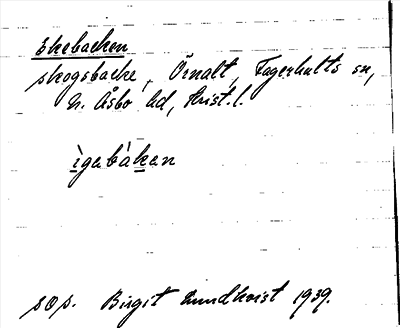 Ekebacken
skogsbacke, Örnalt, Fagerhults sn,
N. Åsbo hd, Krist.l.
ìgebàken
sOp. Birgit Lundkvist 1939.